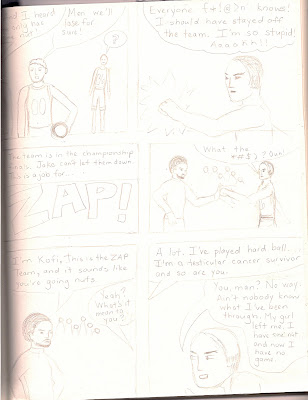 I heard
only has
Men we'll
lose for
sure!
?
Everyone f+!@>n knows!
I should have stayed off
the team. I'm so stupid!
Aaaahh!!
The team is in the championship
Jake can't let them down
is a job for...
ZAP!
What the
I'm Kofi. This is the ZAP
Team, and it sounds like
you're going nuts.
Yeah?
What's it
mean to
you?
A lot. I've played hard ball.
I'm a testicular cancer survivor
and so are you.
You, man? No way.
Ain't nobody know
what I've been
through. My girl
left me. I
have one nut
and now I
have no
game.